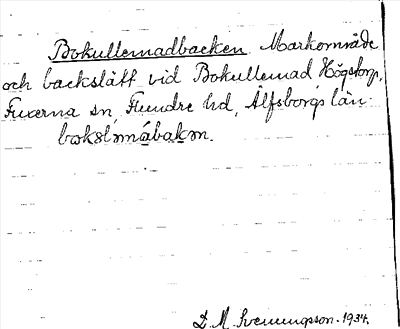 Bokullemadbacken. Markområde
och backslätt vid Bokullemad Högstorp,
Fuxerna sn, Flundre hd, Älfsborgs län.
D. M. Svenungsson. 1934.